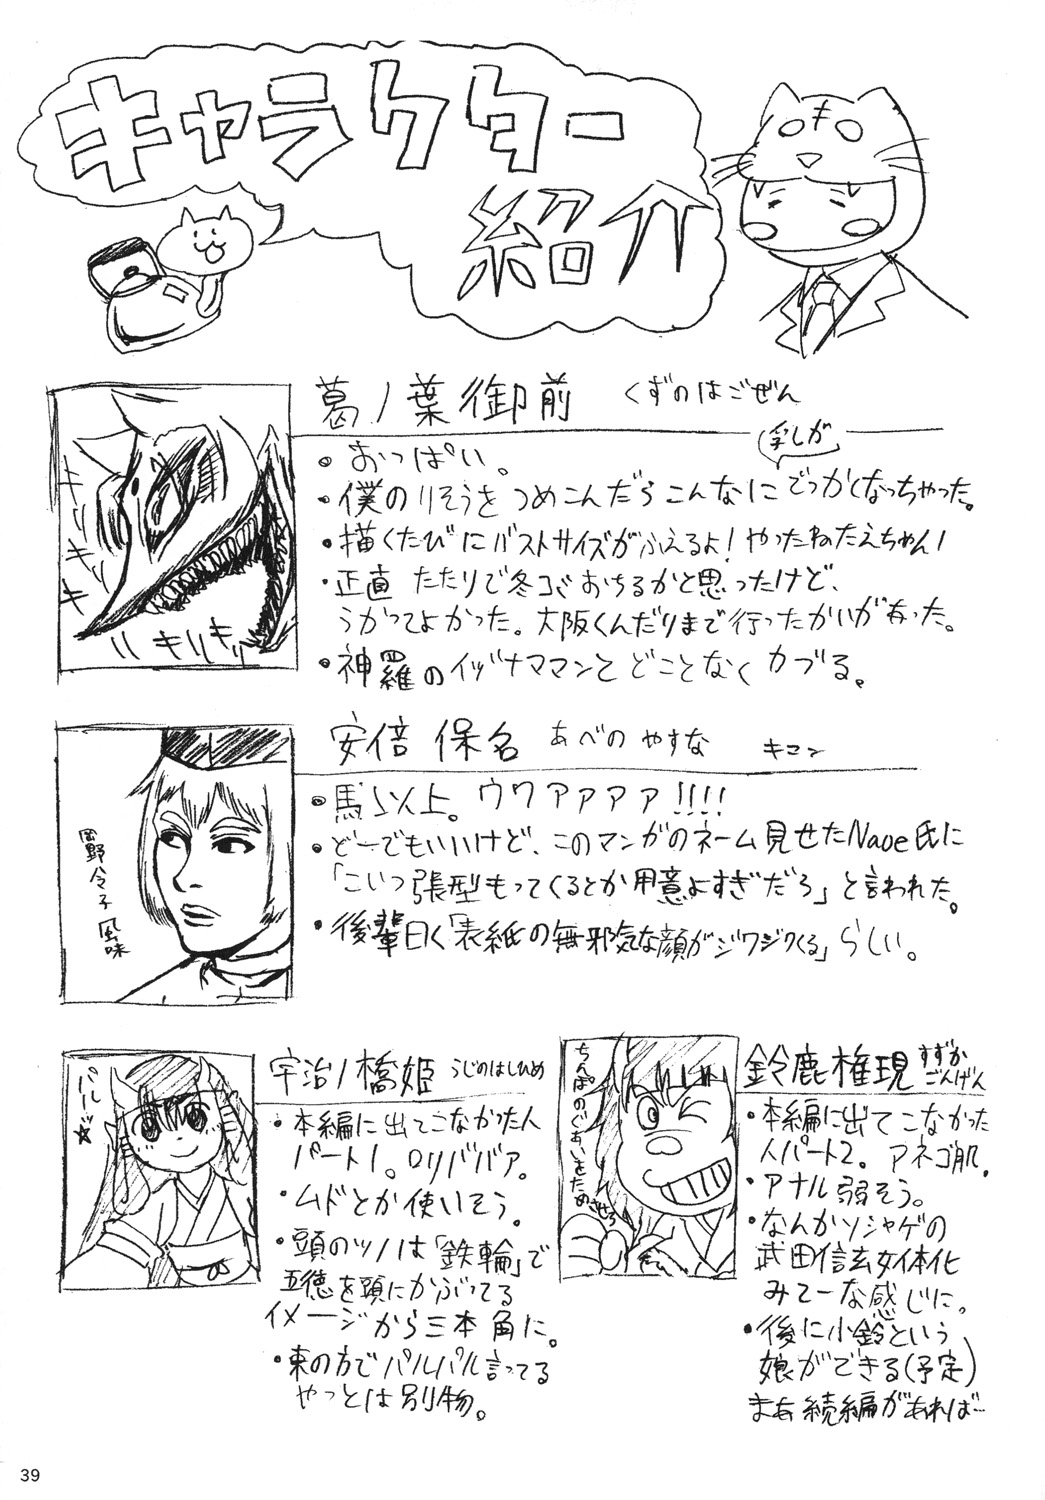 キャラクター
紹介
葛ノ葉御前 くずのはごぜん
・おっぱい。
乳しが
・僕のりそうをつめこんだらこんなにでっかくなっちゃった。
・描くたびにバストサイズがふえるよ!やったねたえちゃん!
・正直 たたりで冬コミおちるかと思ったけど、
うかってよかった。大阪くんだりまで行ったかいがあった。
・神羅のイヅナママンとどことなくカブる。
安倍 保名 あべの やすな キコン
・馬以上。ウワァァァァ!!!!
・どーでもいいけど、このマンガのネーム見せたNaoe氏に
「こいつ張型もってくるとか用意よすぎだろ」と言われた。
・後輩曰く「表紙の無邪気な顔がジワジワくる」らしい。
岡野令子風味
宇治ノ橋姫 うじのはしひめ
・本編に出てこなかった人
パート1。ロリババア。
・ムドとか使いそう。
・頭のツノは「鉄輪」で
五徳を頭にかぶってる
イメージから三本角に。
・東の方でパルパル言ってる
やつとは別物。
パルッ☆
鈴鹿権現 すずか
ごんげん
・本編に出てこなかった
人パート2。アネゴ肌。
・アナル弱そう。
・なんかソシャゲの
武田信玄女体化
みてーな感じに。
・後に小鈴という
娘ができる(予定)
まあ続編があれば…
ちんぽのぐあいをためさせろ
39